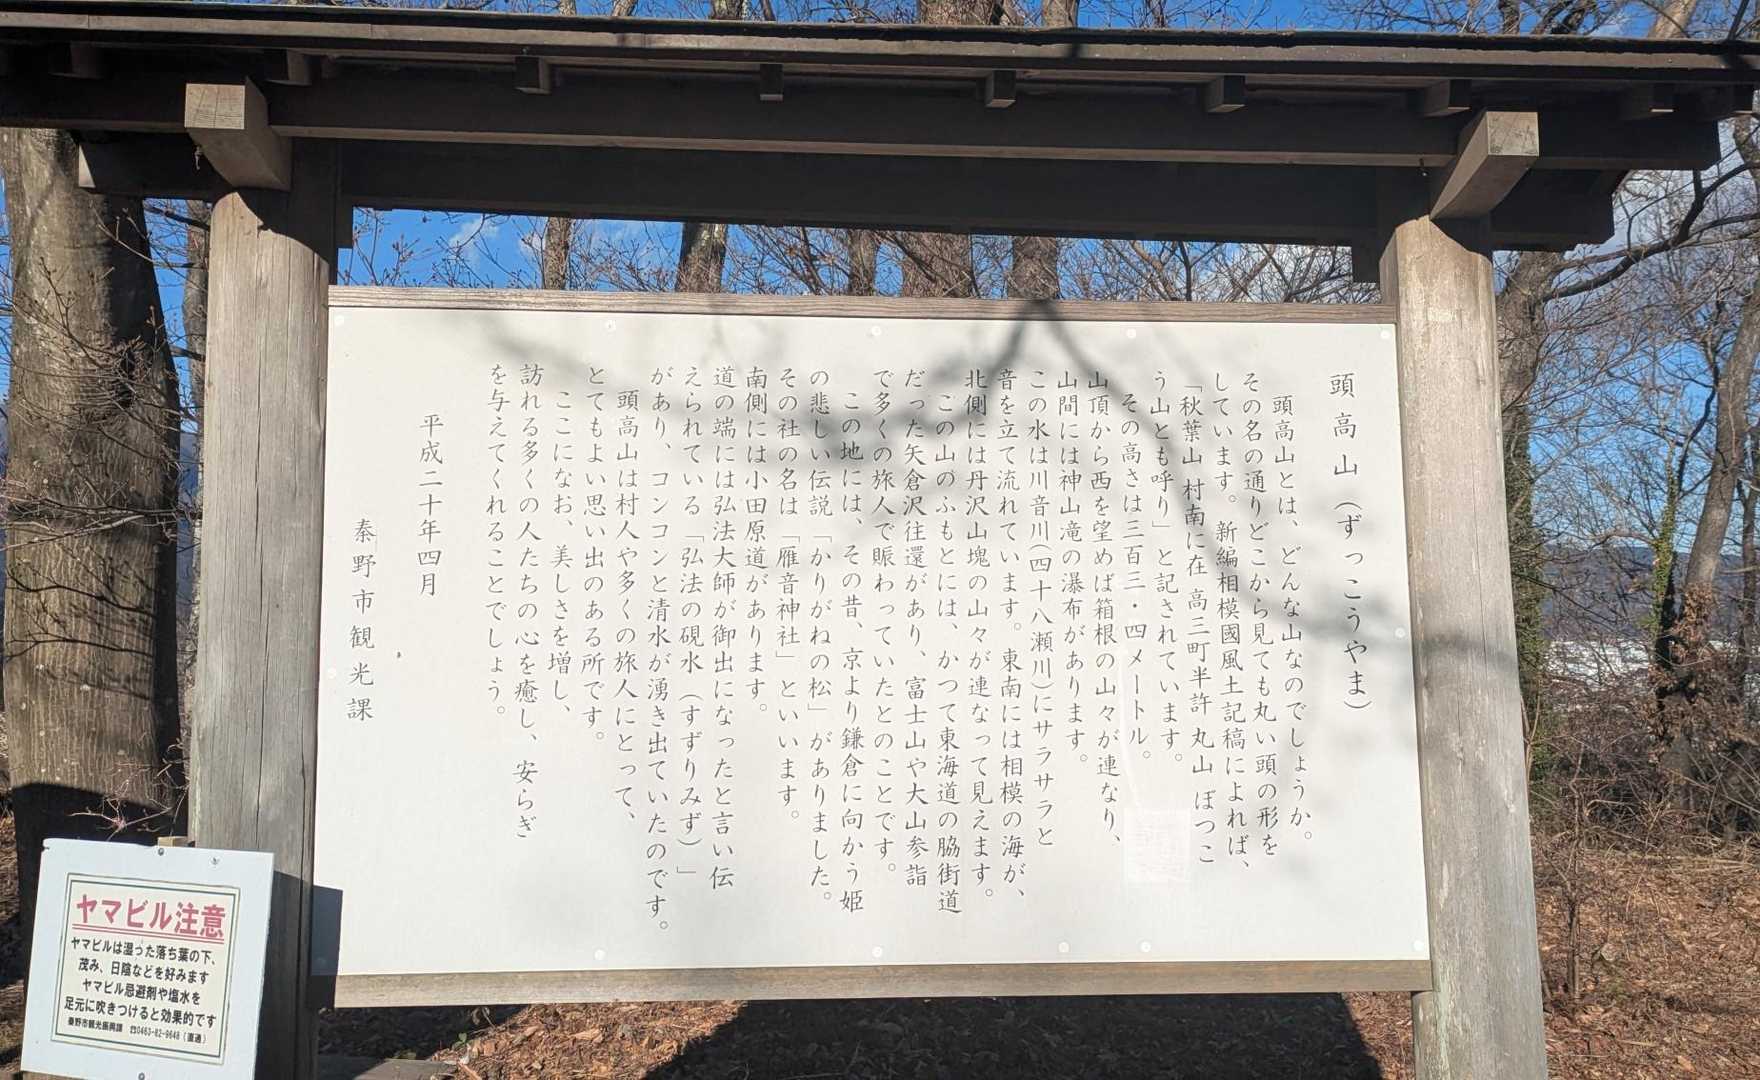 頭高山（ずっこうやま）
頭高山とは、どんな山なのでしょうか。
その名の通りどこから見ても丸い頭の形を
しています。新編相模國風土記稿によれば、
「秋葉山 村南に在 高三町半許 丸山 ぼつこ
う山とも呼り」と記されています。
その高さは三百三・四メートル。
山頂から西を望めば箱根の山々が連なり、
山間には神山滝の瀑布があります。
この水は川音川(四十八瀬川)にサラサラと
音を立て流れています。東南には相模の海が、
北側には丹沢山塊の山々が連なって見えます。
この山のふもとには、かつて東海道の脇街道
だった矢倉沢往還があり、富士山や大山参詣
で多くの旅人で賑わっていたとのことです。
この地には、その昔、京より鎌倉に向かう姫
の悲しい伝説「かりがねの松」がありました。
その社の名は「雁音神社」といいます。
南側には小田原道があります。
道の端には弘法大師が御出になったと言い伝
えられている「弘法の硯水（すずりみず）」
があり、コンコンと清水が湧き出ていたのです。
頭高山は村人や多くの旅人にとって、
とてもよい思い出のある所です。
ここになお、美しさを増し、
訪れる多くの人たちの心を癒し、安らぎ
を与えてくれることでしょう。
平成二十年四月
秦野市観光課
ヤマビル注意
ヤマビルは湿った落ち葉の下、
茂み、日陰などを好みます
ヤマビル忌避剤や塩水を
足元に吹きつけると効果的です
秦野市観光振興課 ☎0463-82-9648（直通）